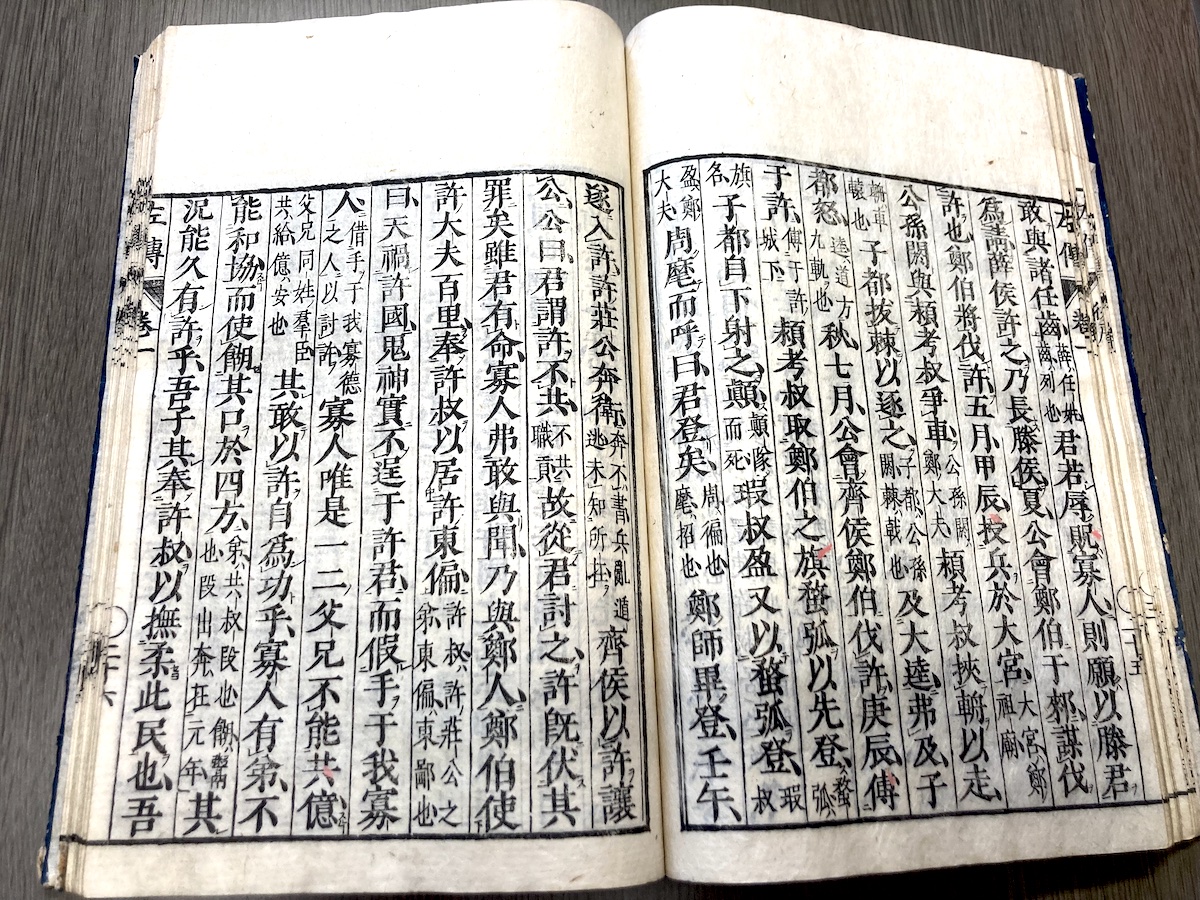 左傳 卷一 二十五
敢與諸任齒薛任姓齒列也君若辱貺寡人則願以滕君
爲請薛侯許之乃長滕侯夏公會鄭伯于郲謀伐
許也鄭伯將伐許五月甲辰授兵於大宮大宮鄭祖廟
公孫閼與穎考叔爭車公孫閼鄭大夫穎考叔挾輈以走
輈車轅也子都拔棘以逐之子都公孫閼棘戟也及大逵弗及子
都怒逵道方九軌也秋七月公會齊侯鄭伯伐許庚辰傅
于許傅于許城下穎考叔取鄭伯之旗蝥弧以先登蝥弧
旗名子都自下射之顛顛隊而死瑕叔盈又以蝥弧登瑕叔
盈鄭大夫周麾而呼曰君登矣周徧也麾招也鄭師畢登壬午
遂入許許莊公奔衛奔不書兵亂遁逃未知所在齊侯以許讓
公公曰君謂許不共不共職貢故從君討之許既伏其
罪矣雖君有命寡人弗敢與聞乃與鄭人鄭伯使
許大夫百里奉許叔以居許東偏許叔許莊公之弟東偏東鄙也
曰天禍許國鬼神實不逞于許君而假手于我寡
人借手于我寡德之人以討許寡人唯是一二父兄不能共億
父兄同姓羣臣共給億安也其敢以許自爲功乎寡人有弟不
能和協而使餬其口於四方弟共叔段也餬鬻也段出奔在元年其
況能久有許乎吾子其奉許叔以撫柔此民也吾
左傳 卷一 二十六